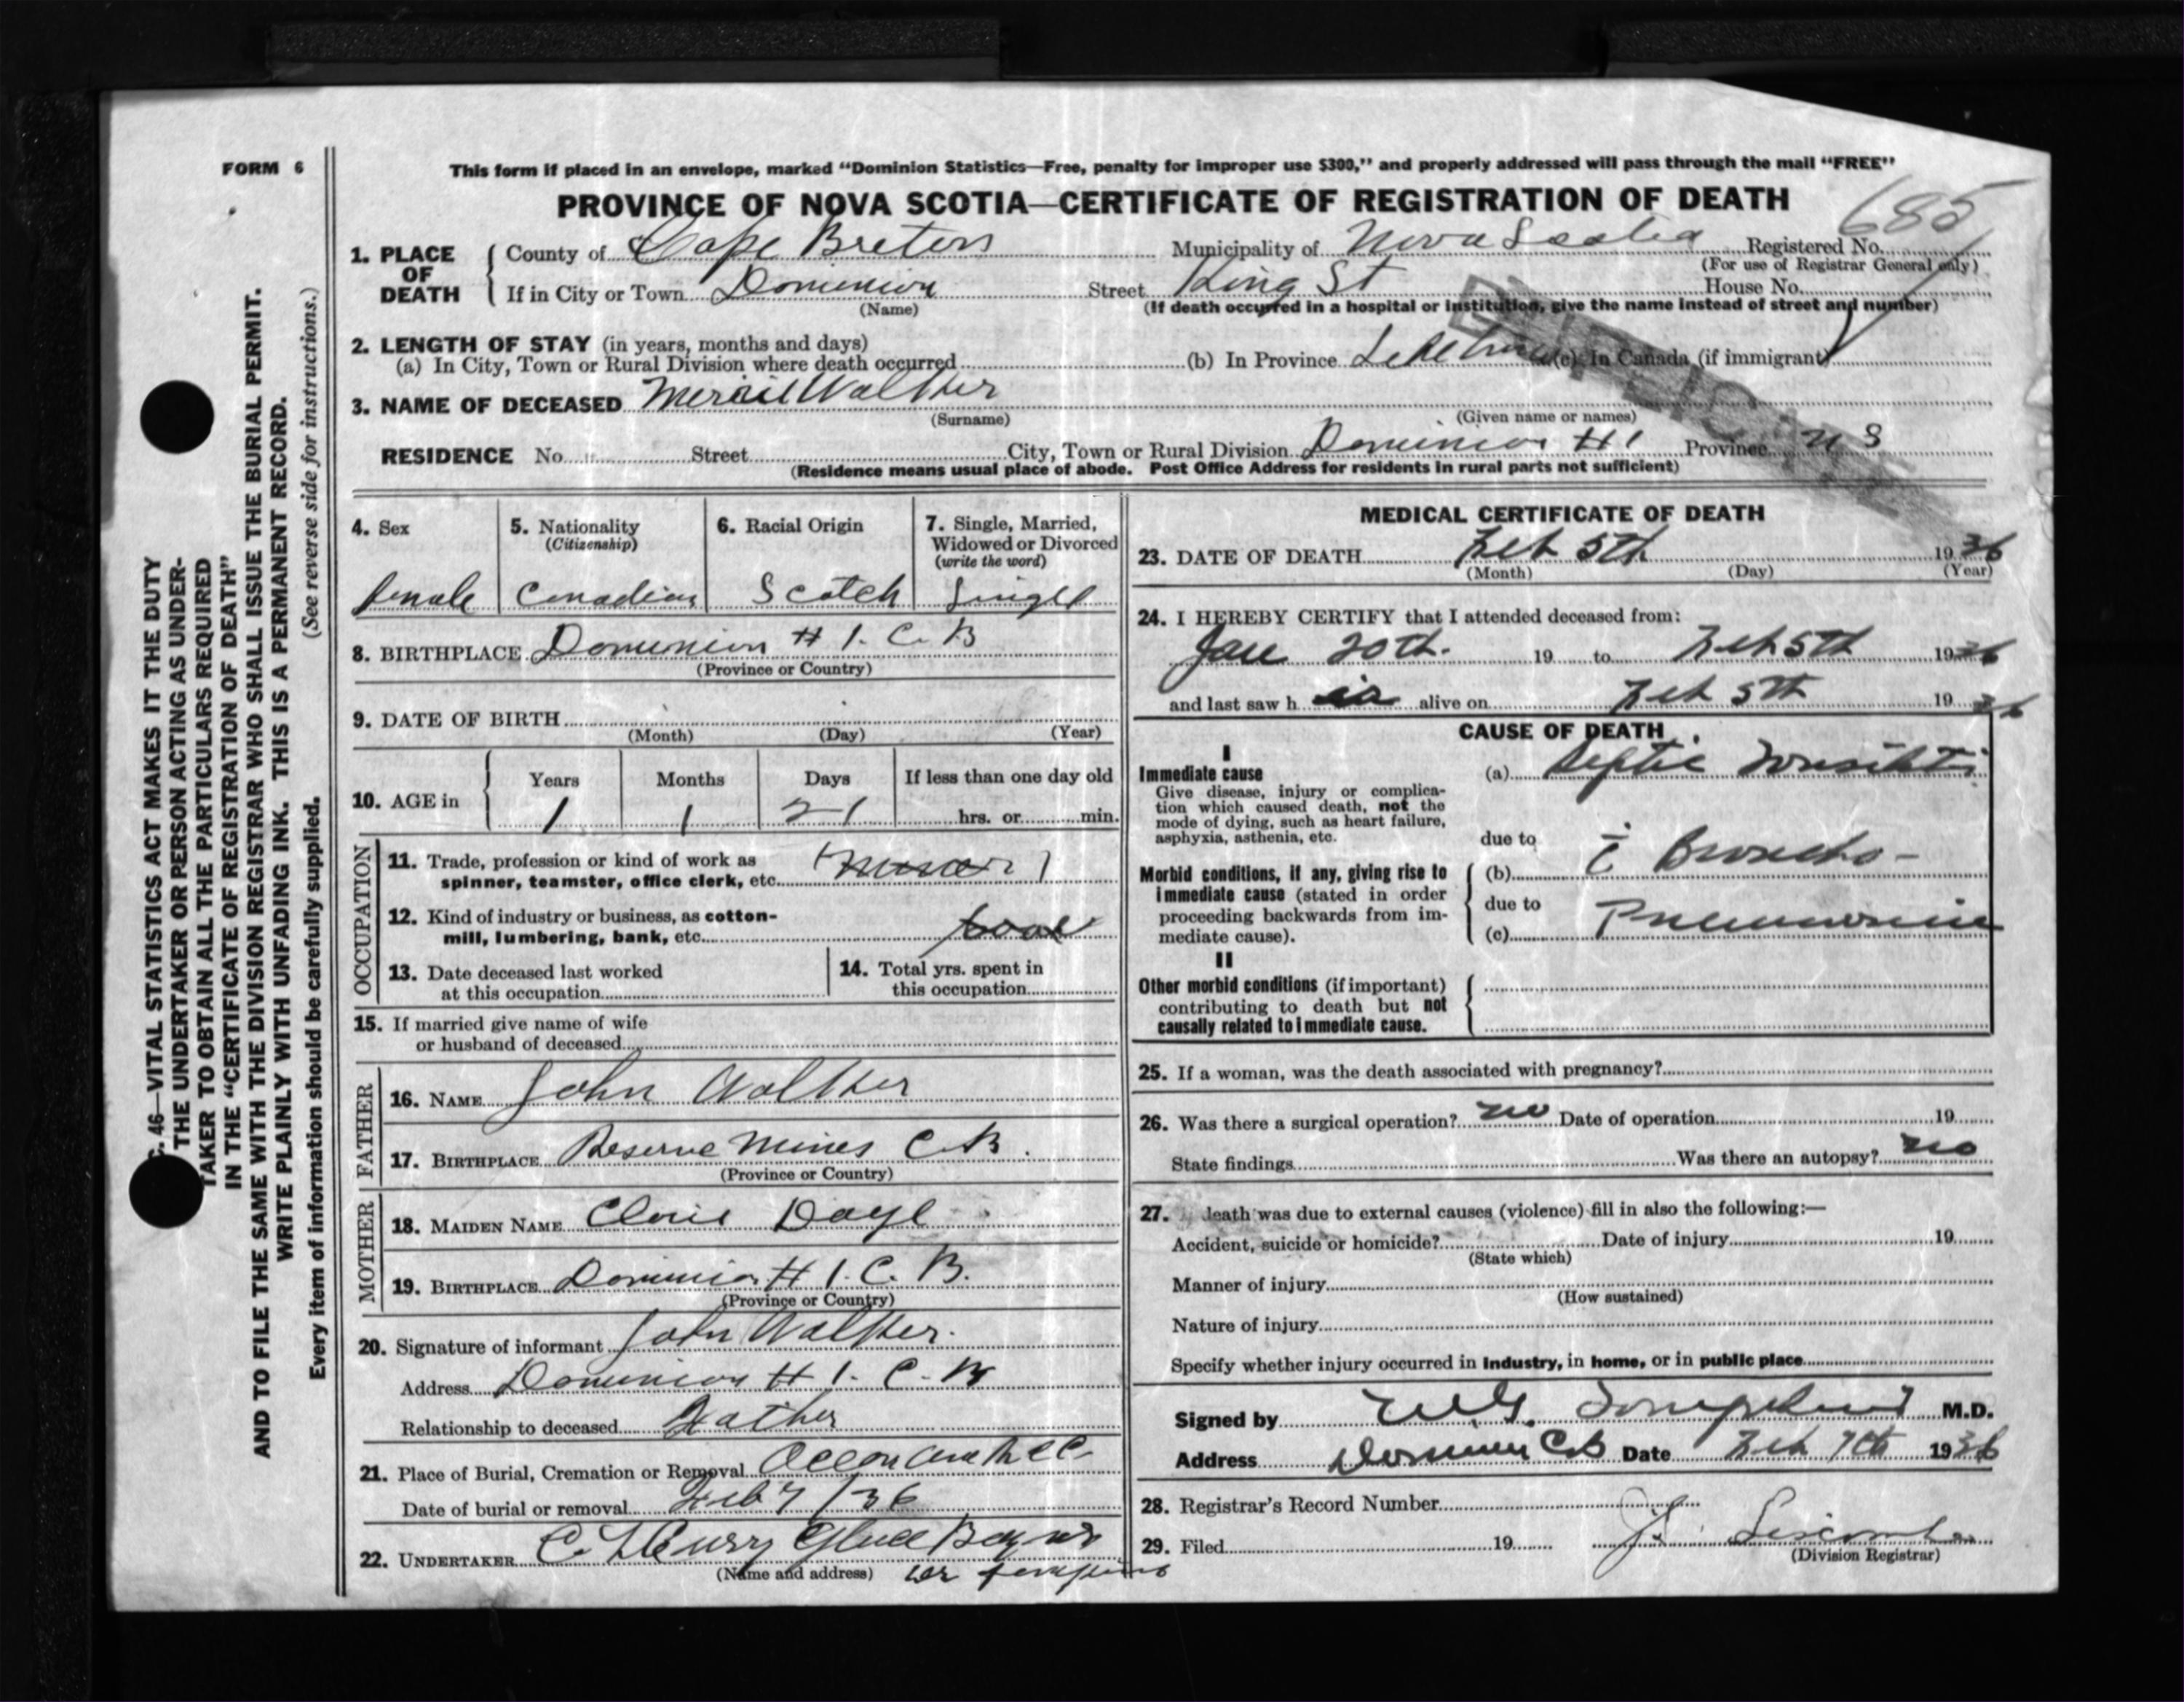 FORM 6
This form if placed in an envelope, marked “Dominion Statistics—Free, penalty for improper use $300,” and properly addressed will pass through the mail “FREE”
PROVINCE OF NOVA SCOTIA—CERTIFICATE OF REGISTRATION OF DEATH
685
1. PLACE OF DEATH
County of Cape Breton Municipality of Nova Scotia Registered No.
(For use of Registrar General only)
If in City or Town Dominion Street King St House No.
(Name) (If death occurred in a hospital or institution, give the name instead of street and number)
2. LENGTH OF STAY (in years, months and days)
(a) In City, Town or Rural Division where death occurred (b) In Province Life time (c) In Canada (if immigrant)
3. NAME OF DECEASED Walker
(Surname) (Given name or names)
RESIDENCE No. Street City, Town or Rural Division Dominion #1 Province N S
(Residence means usual place of abode. Post Office Address for residents in rural parts not sufficient)
4. Sex
female
5. Nationality
(Citizenship)
Canadian
6. Racial Origin
Scotch
7. Single, Married,
Widowed or Divorced
(write the word)
Single
8. BIRTHPLACE Dominion # 1. C. B
(Province or Country)
9. DATE OF BIRTH
(Month) (Day) (Year)
10. AGE in
Years Months Days If less than one day old
1 1 21 hrs. or min.
OCCUPATION
11. Trade, profession or kind of work as
spinner, teamster, office clerk, etc. (miner)
12. Kind of industry or business, as cotton-
mill, lumbering, bank, etc. coal
13. Date deceased last worked
at this occupation
14. Total yrs. spent in
this occupation
15. If married give name of wife
or husband of deceased
FATHER
16. NAME John Walker
17. BIRTHPLACE Reserve Mines C.B.
(Province or Country)
MOTHER
18. MAIDEN NAME
19. BIRTHPLACE Dominion # 1. C. B.
(Province or Country)
20. Signature of informant John Walker.
Address Dominion # 1. C. B
Relationship to deceased Father
21. Place of Burial, Cremation or Removal
Date of burial or removal Feb 7/36
22. UNDERTAKER C. Curry Glace Bay NS
(Name and address)
MEDICAL CERTIFICATE OF DEATH
23. DATE OF DEATH Feb 5th 1936
(Month) (Day) (Year)
24. I HEREBY CERTIFY that I attended deceased from:
Jan 20th. 19 to Feb 5th 1936
and last saw h er alive on Feb 5th 1936
CAUSE OF DEATH
I
Immediate cause
Give disease, injury or complica-
tion which caused death, not the
mode of dying, such as heart failure,
asphyxia, asthenia, etc.
(a) Septic Tonsilitis
due to
Morbid conditions, if any, giving rise to
immediate cause (stated in order
proceeding backwards from im-
mediate cause).
(b) c̄ Broncho-
due to
(c) Pneumonia
II
Other morbid conditions (if important)
contributing to death but not
causally related to immediate cause.
25. If a woman, was the death associated with pregnancy?
26. Was there a surgical operation? no Date of operation 19
State findings Was there an autopsy? no
27. death was due to external causes (violence) fill in also the following:—
Accident, suicide or homicide? Date of injury 19
(State which)
Manner of injury
(How sustained)
Nature of injury
Specify whether injury occurred in Industry, in home, or in public place
Signed by M.D.
Address Dominion CB Date Feb 7th 1936
28. Registrar’s Record Number
29. Filed 19
(Division Registrar)
C. 46—VITAL STATISTICS ACT MAKES IT THE DUTY
THE UNDERTAKER OR PERSON ACTING AS UNDER-
TAKER TO OBTAIN ALL THE PARTICULARS REQUIRED
IN THE “CERTIFICATE OF REGISTRATION OF DEATH”
AND TO FILE THE SAME WITH THE DIVISION REGISTRAR WHO SHALL ISSUE THE BURIAL PERMIT.
WRITE PLAINLY WITH UNFADING INK. THIS IS A PERMANENT RECORD.
Every item of information should be carefully supplied. (See reverse side for instructions.)